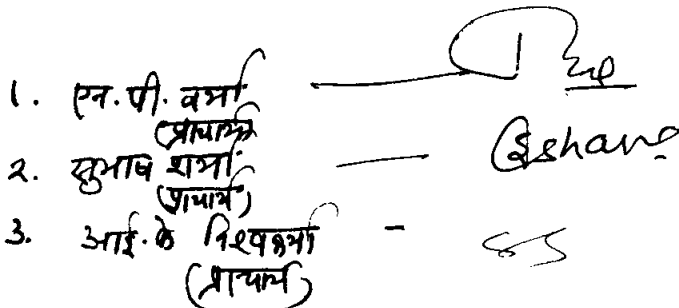 1. एन. पी. वर्मा —
(प्राचार्य)
2. सुभाष शर्मा —
(प्राचार्य)
3. आई. के विश्वकर्मा -
(प्राचार्य)